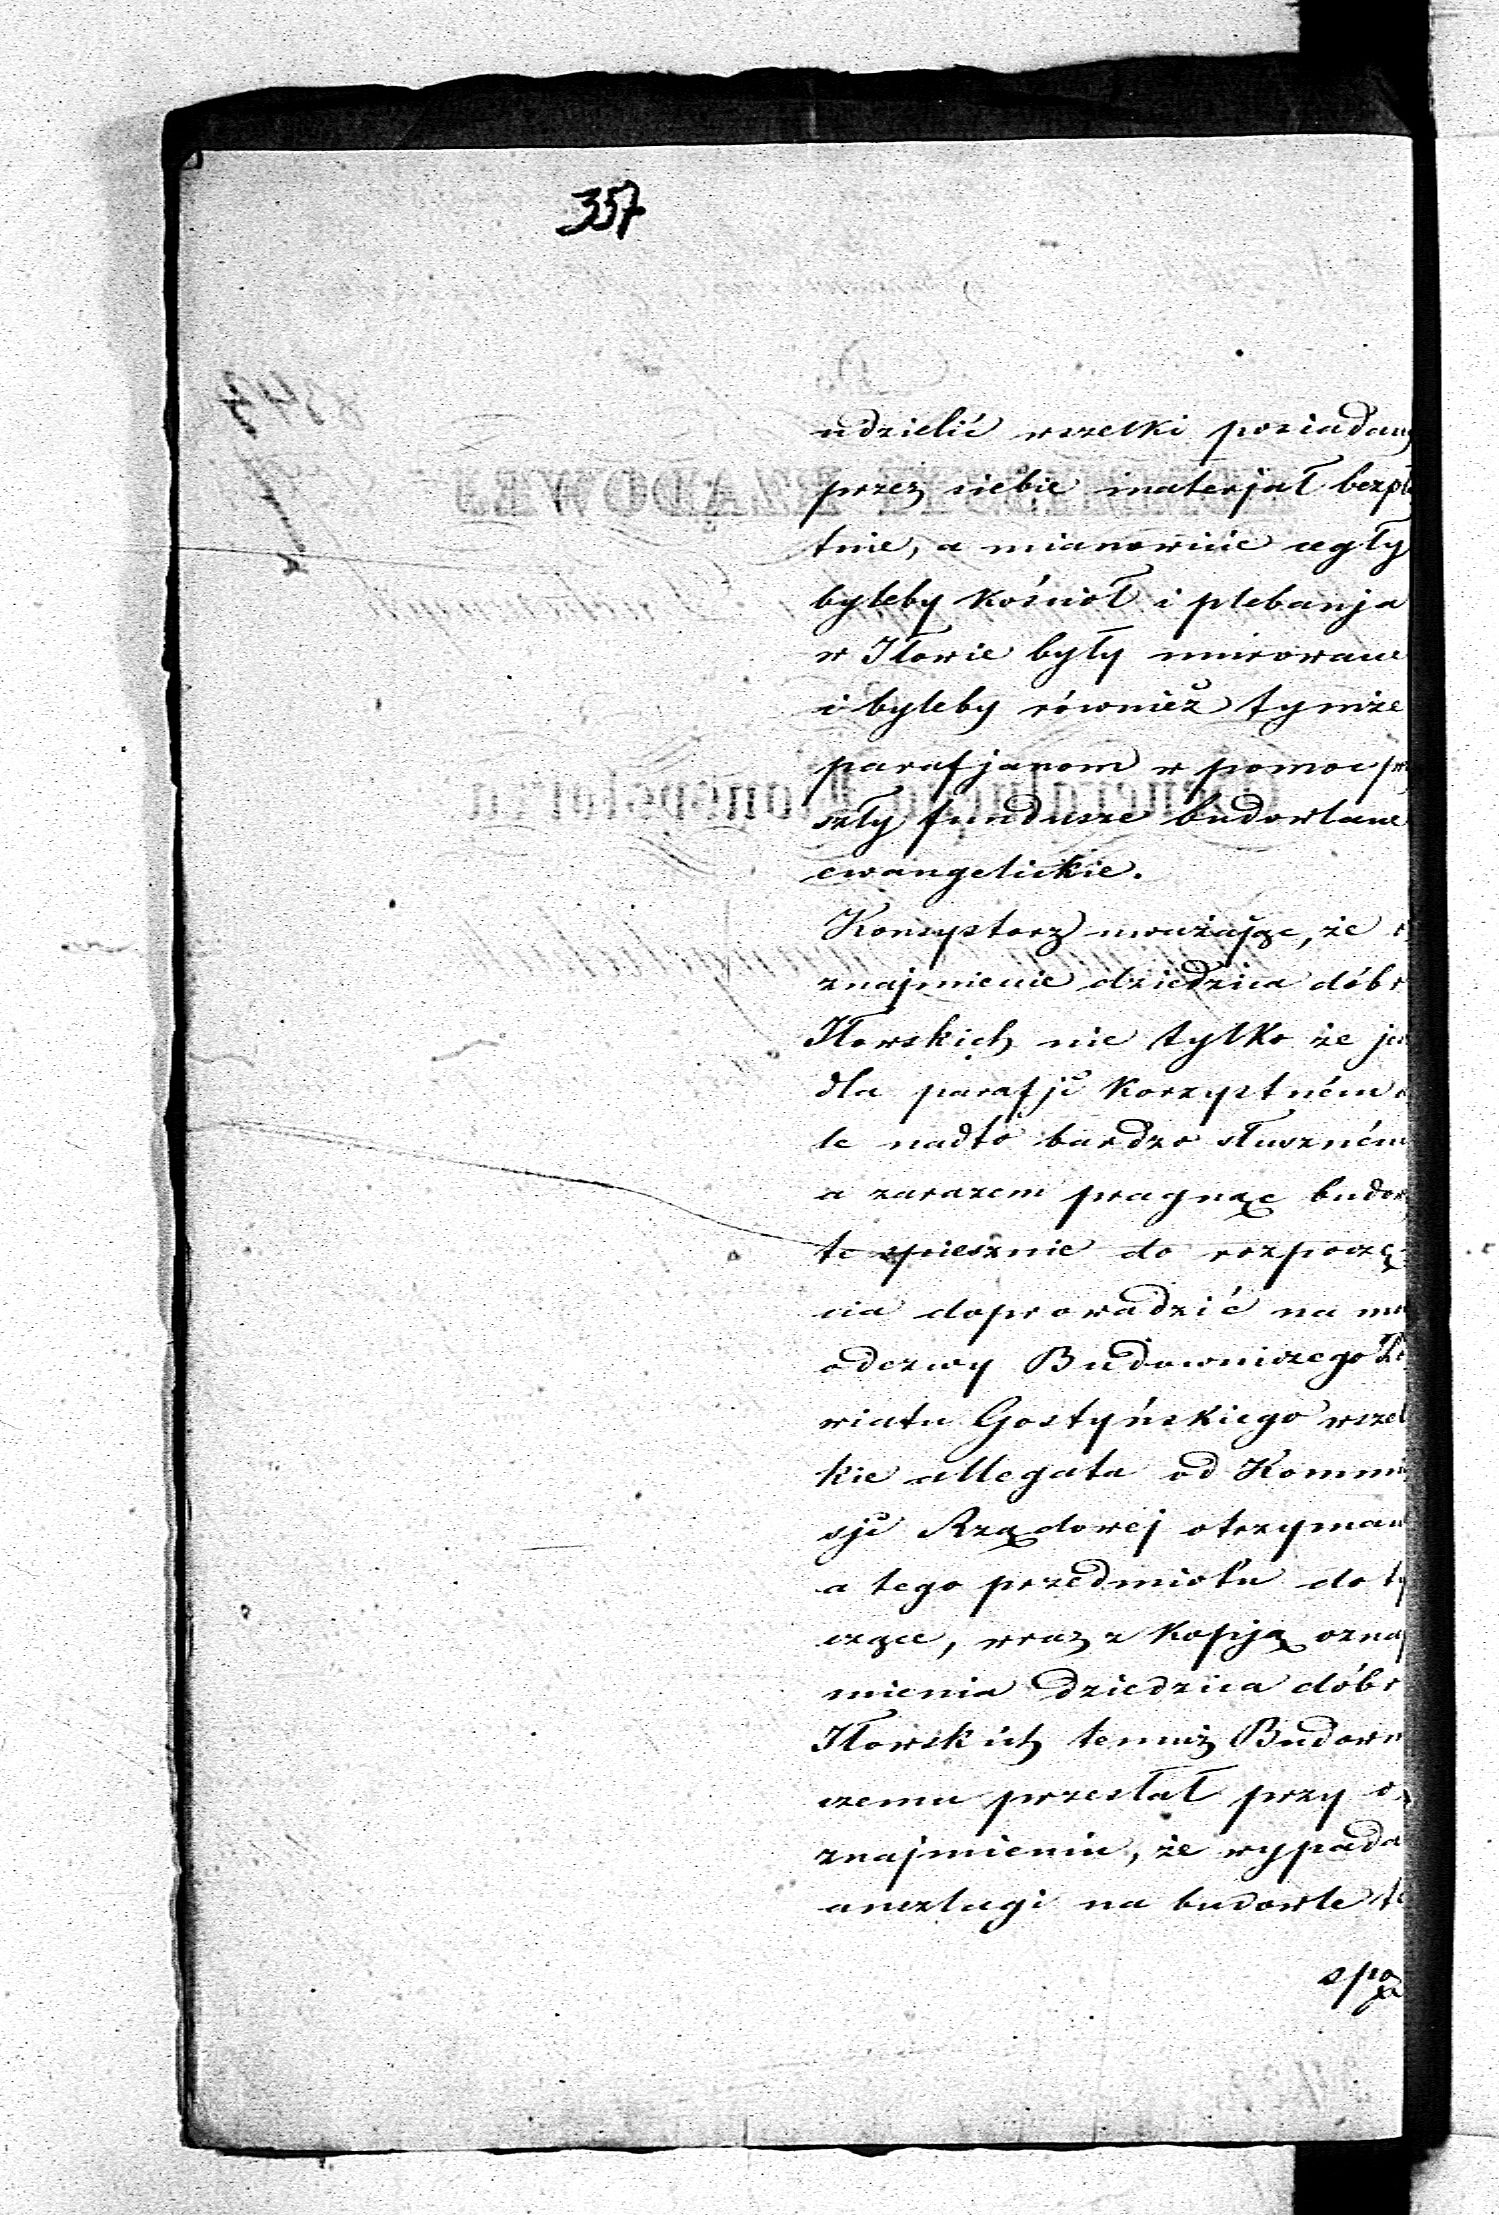 357
udzielić wszelki posiadany
przez siebie materjał bezpła
tnie, a mianowicie cegły
byleby kościoł i plebanja
w Iłowie były murowane
i byleby również tymże
parafjanom w pomoc prz
szły fundusze budowlane
ewangelickie.
Konsystorz uważając, że o
znajmienie dziedzica dóbr
Iłowskich nie tylko że jes
dla parafji korzystném a
le nadto bardzo słuszném
a zarazem pragnąc budow
te spiesznie do rozpoczę
cia doprowadzić na mo
odezwy Budowniczego Po
wiatu Gostyńskiego wszel
kie allegata od Kommi
sji Rządowej otrzyman
a tego przedmiotu doty
czące, wraz z kopją oznaj
mienia dziedzica dóbr
Iłowskich temuż Budown
czemu przesłał przy o
znajmieniu, że wypada
anszlagi na budowle te